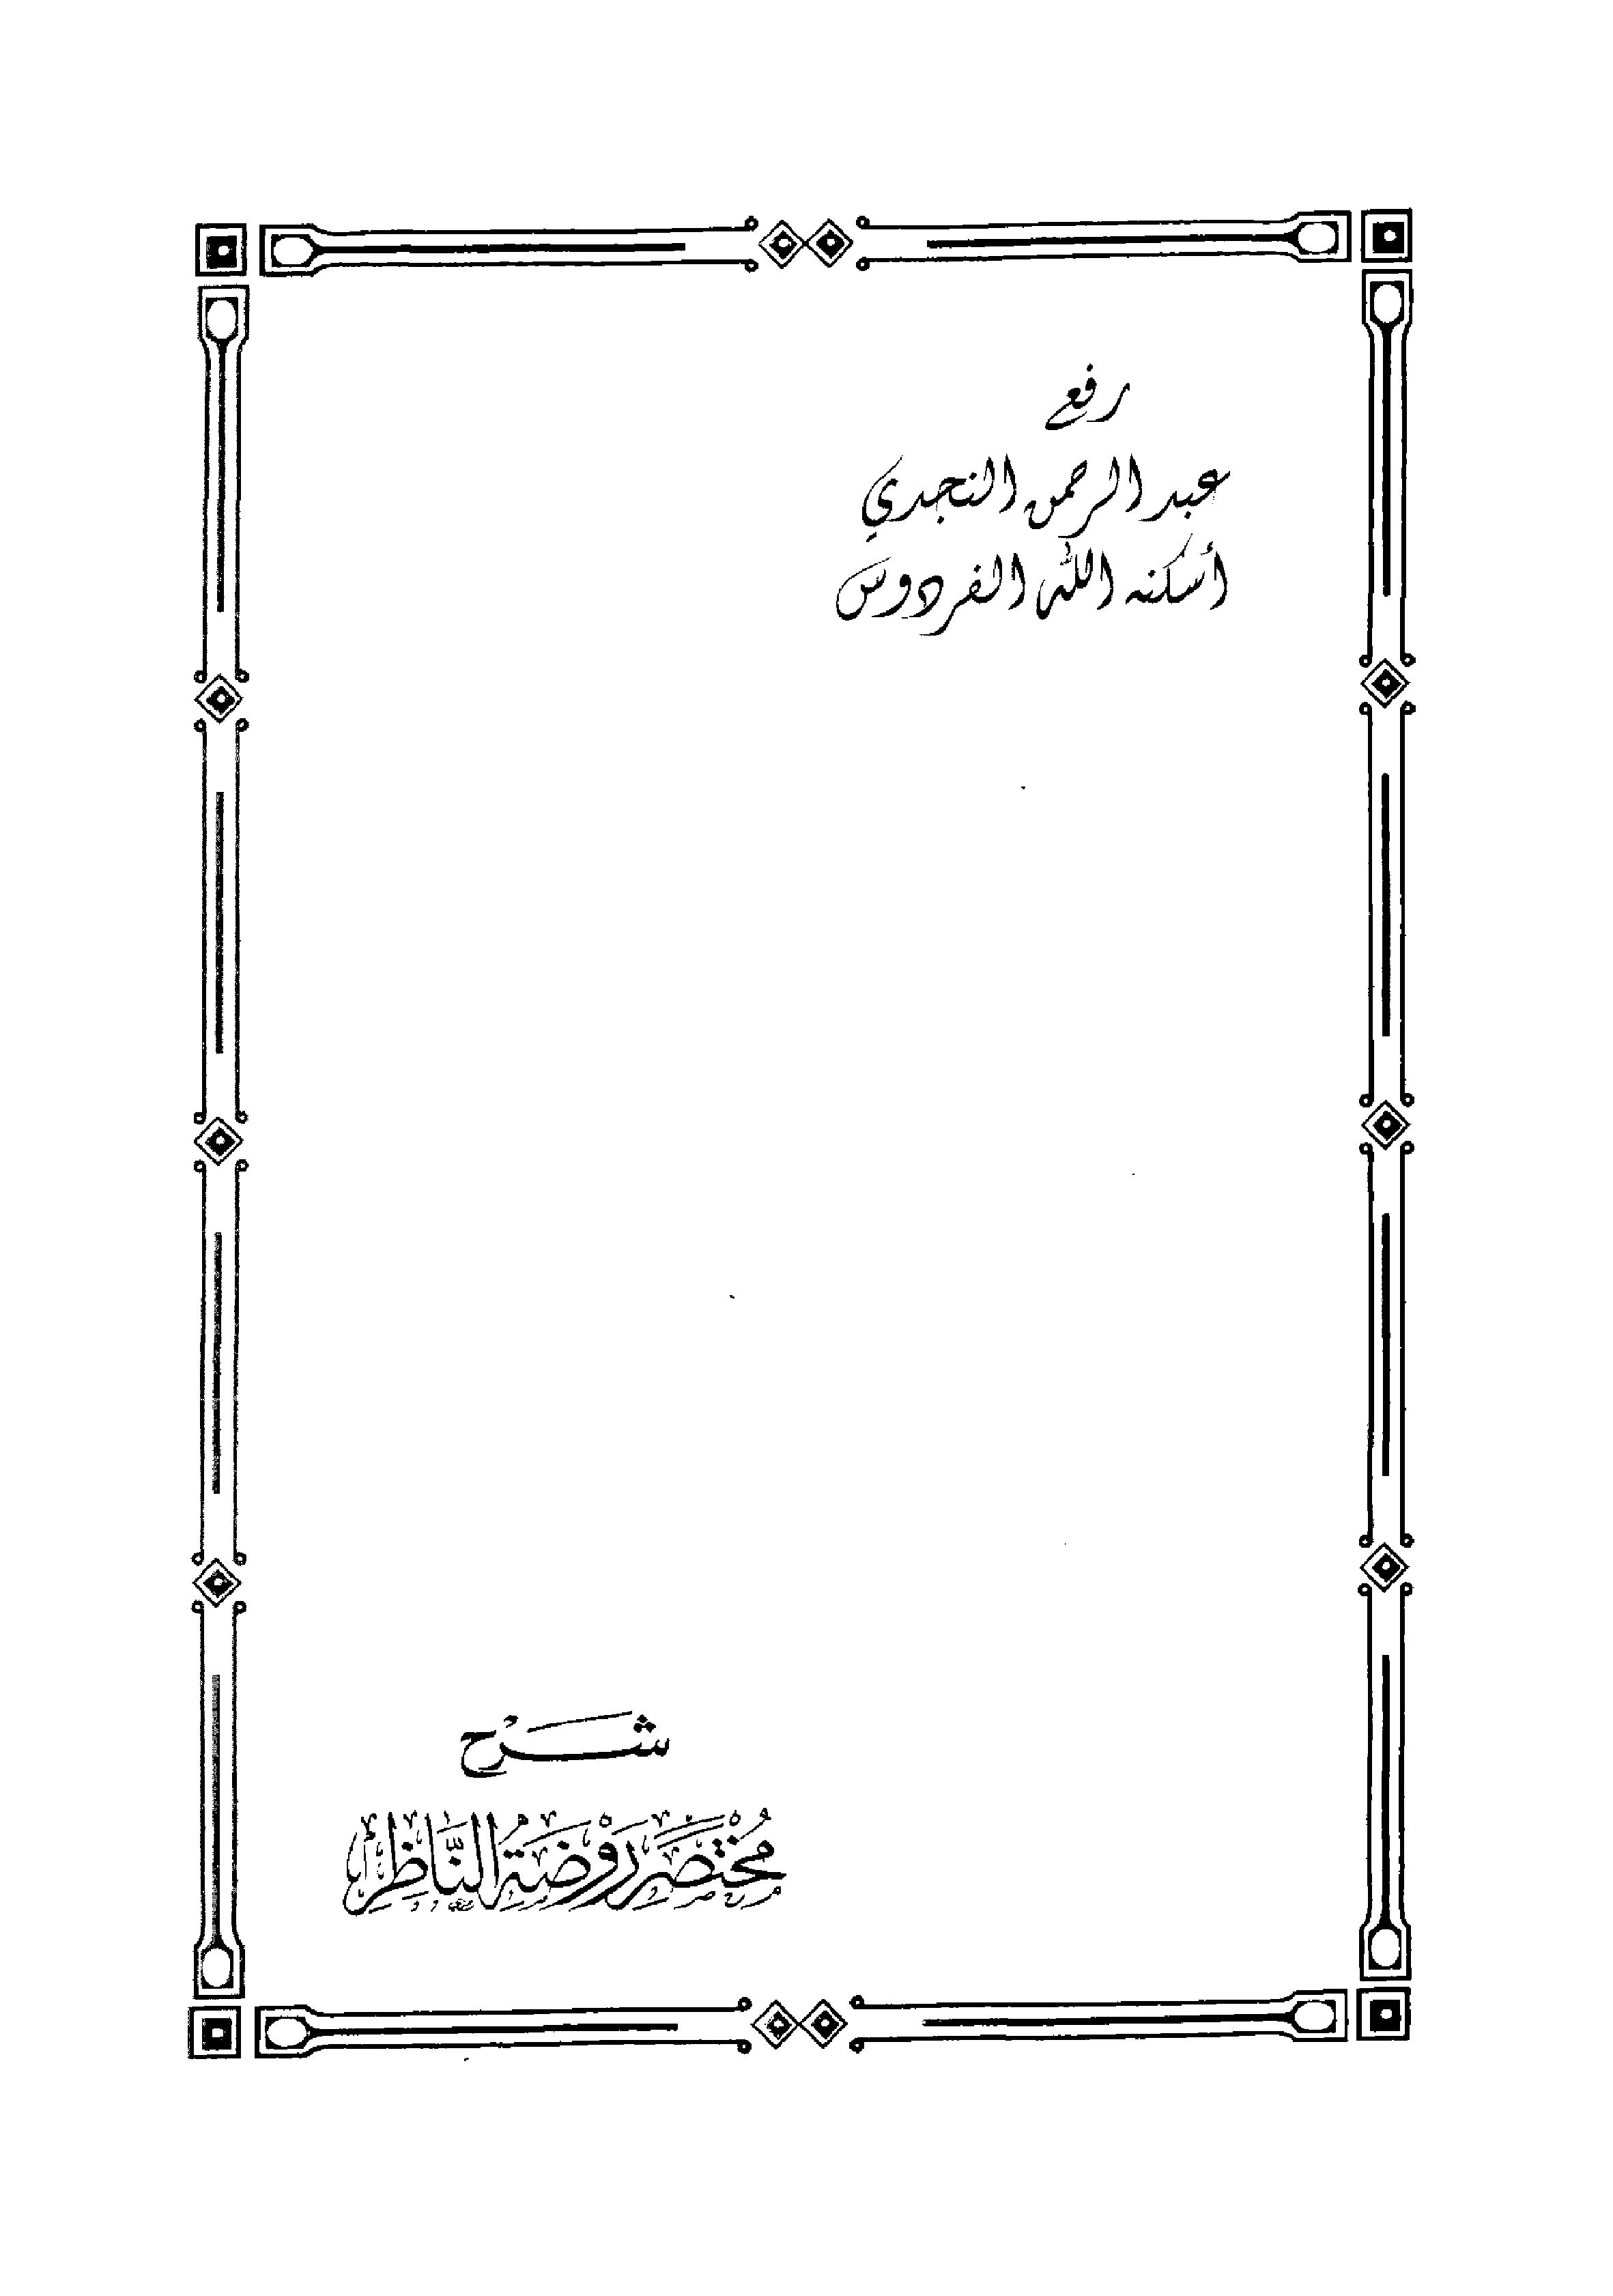 رفع
عبد الرحمن النجدي
أسكنه الله الفردوس
شَرْح
مُخْتَصَر رَوْضَةُ النَّاظِر